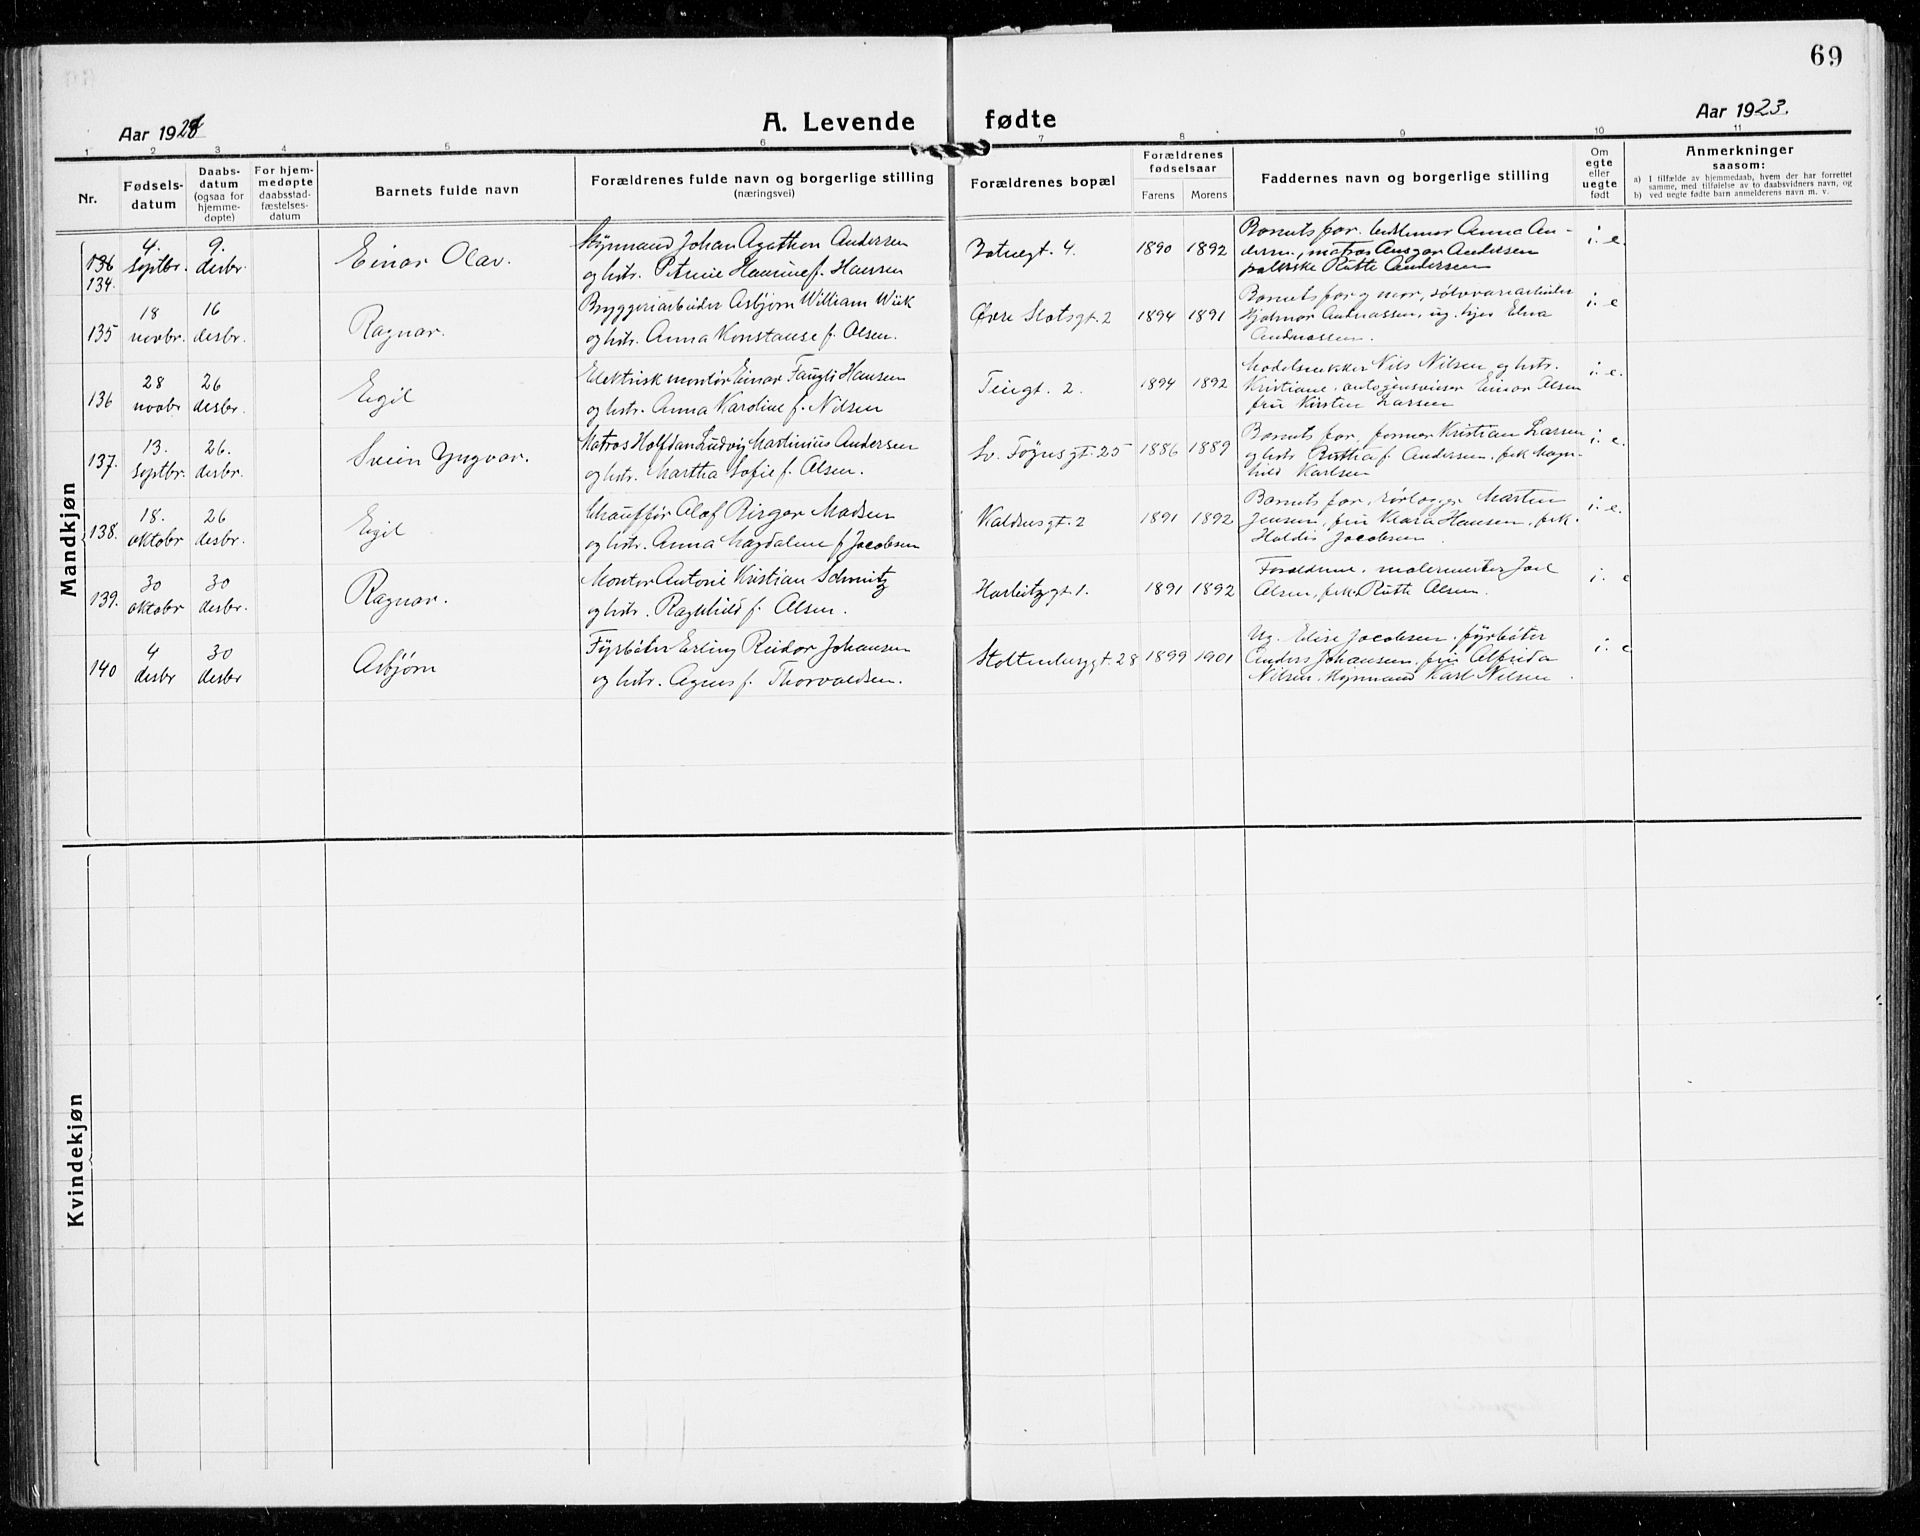 69
Aar 192
A. Levende fødte
Aar 1923.
1 2 3 4 5 6 7 8 9 10 11
Nr.
Fødsels-
datum
Daabs-
datum
(ogsaa for
hjemme-
døpte)
For hjem-
medøpte
daabsstad-
fæstelses-
datum
Barnets fulde navn
Forældrenes fulde navn og borgerlige stilling
(næringsvei)
Forældrenes bopæl
Forældrenes
fødselsaar
Farens Morens
Faddernes navn og borgerlige stilling
Om
egte
eller
uegte
født
Anmerkninger
saasom:
a) I tilfælde av hjemmedaab, hvem der har forrettet
samme, med tilføielse av to daabsvidners navn, og
b) ved uegte fødte barn anmelderens navn m. v.
Mandkjøn
136
134.
4.
septbr.
9.
desbr.
Einar Olav.
Johan Agathon Andersen
og hstr. Petrine f. Hansen
4.
1890 1892
Barnets far, bestemor Anna An-
dersen, matros Ansgar Andersen
Ruth Andersen
i. e.
135
18
novbr.
16
desbr.
Ragnar.
Bryggeriarbeider Asbjørn William Wiik
og hstr. Anna Konstanse f. Olsen.
Øvre Slotsgt. 2
1894 1891
Barnets far og mor, sølvvarearbeider
Hjalmar Andreassen, ug. Elna
Andreassen.
i. e
136
28
novbr
26
desbr.
Egil
Elektrisk montør Einar Hansen
og hstr. Anna Karoline f. Nilsen
Teiegt. 2.
1894 1892
Modelsnekker Nils Nilsen og hstr.
Kristiane, Einar Olsen
fru Kirsten Larsen
i. e.
137.
13.
septbr.
26.
desbr.
Svein Yngvar.
Matros Halfdan Ludvig Martinius Andersen
og hstr. Martha Sofie f. Olsen.
Sv. Føynsgt. 25
1886 1889
Barnets far, former Kristian Larsen
og hstr f. Andersen, frk Magn-
hild Karlsen
i. e.
138.
18.
oktobr
26
desbr.
Egil
Chauffør Olaf Birger Madsen
og hstr. Anna Magdalene f Jacobsen
Valdresgt. 2
1891 1892
Barnets far, rørlægger Martin
Jensen, fru Klara Hansen, frk.
Haldis Jacobsen.
i. e.
139.
30
oktobr
30
desbr.
Ragnar.
Montør Antonie Kristian Schmitz
og hstr. Ragnhild f. Olsen.
Harbitzgt. 1.
1891 1892
Forældrene, malermester Joel
Olsen, frk. Ruth Olsen.
i. e
140
4
desbr
30
desbr
Asbjørn
Fyrbøter Erling Reidar Johansen
og hstr. Agnes f. Thorvaldsen.
Stoltenbergt. 28
1899 1901
Ug. Elise Jacobsen, fyrbøter
Anders Johansen, fru Alfrida
Nilsen, Karl Nilsen
i. e
Kvindekjøn